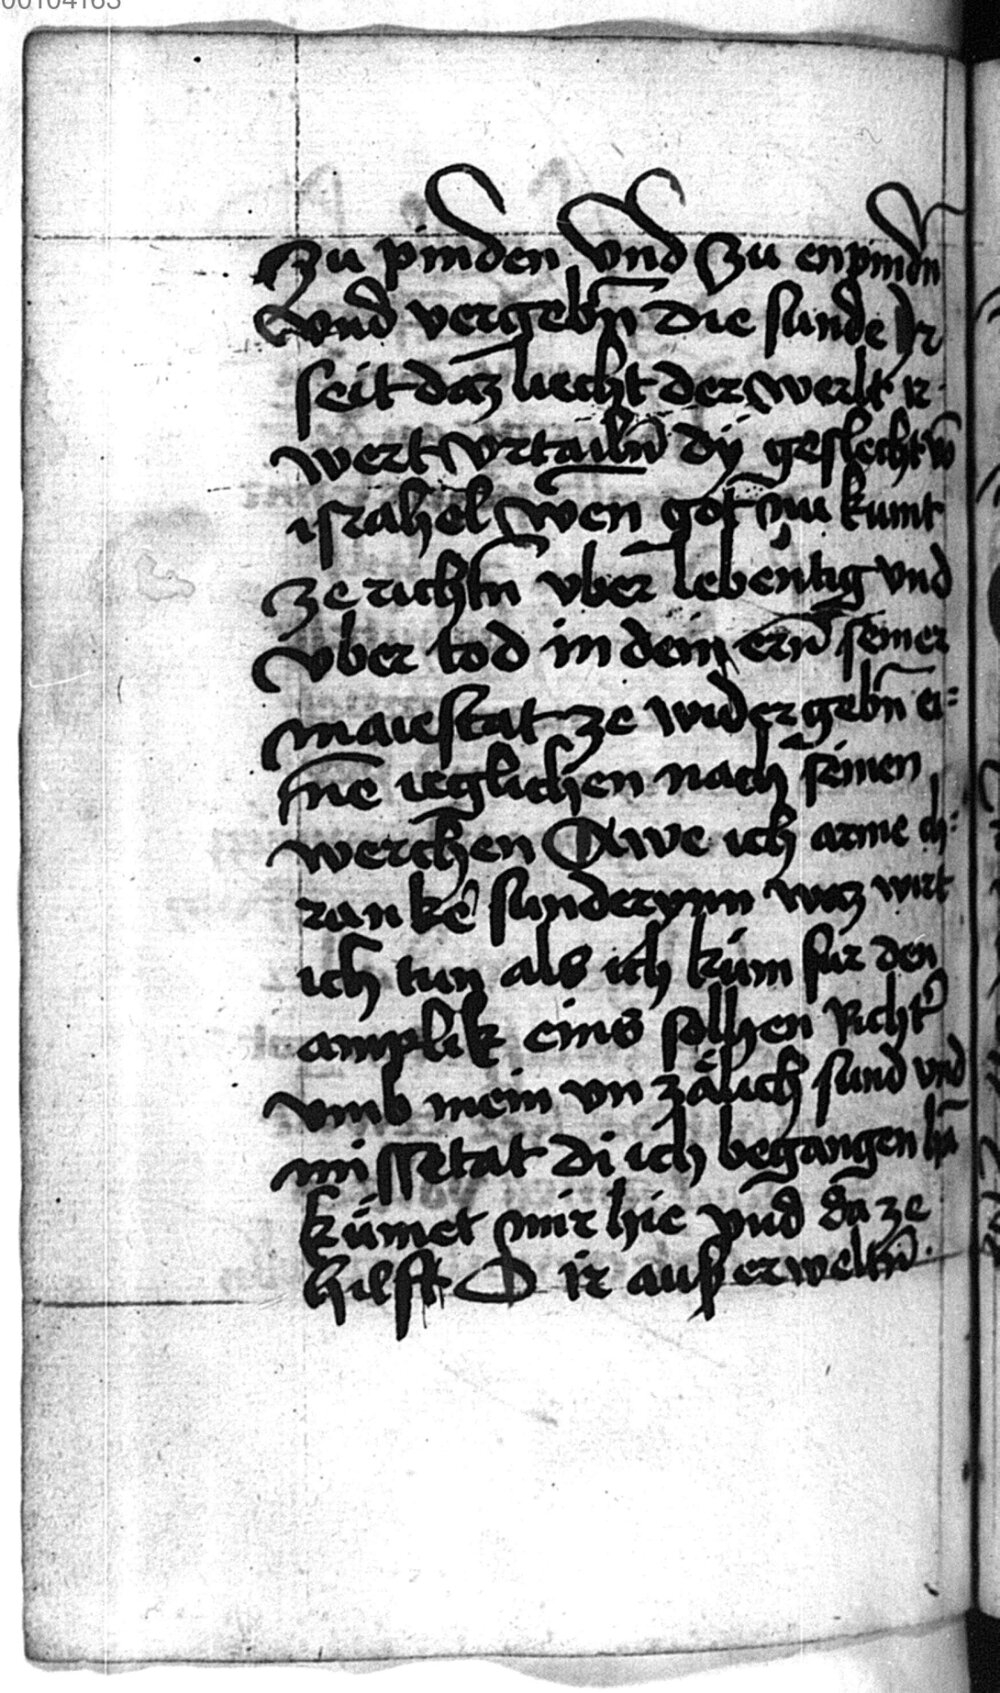 00104163
zu pinden vnd zu enpindn̄
vnd vergebn̄ die sunde Ir
seit daz liecht der werlt ir
wert vrtailn̄ dÿ geslecht vō
israhel wen got nu kumt
ze richtn̄ vber lebentig vnd
vber tod in dem ern̄ seiner
maiestat ze wider gebn̄ ei⸗
nē ieglichen nach seinen
werchen Awe ich arme ch⸗
ranke sunderynn waz wirt
ich tun als ich kum fur den
amplik eins solhen Richt̄
vmb mein vn zälich sund vnd
missetat di ich begangen hā
kümet mir hie vnd da ze
hilff O ir auß erweltn̄